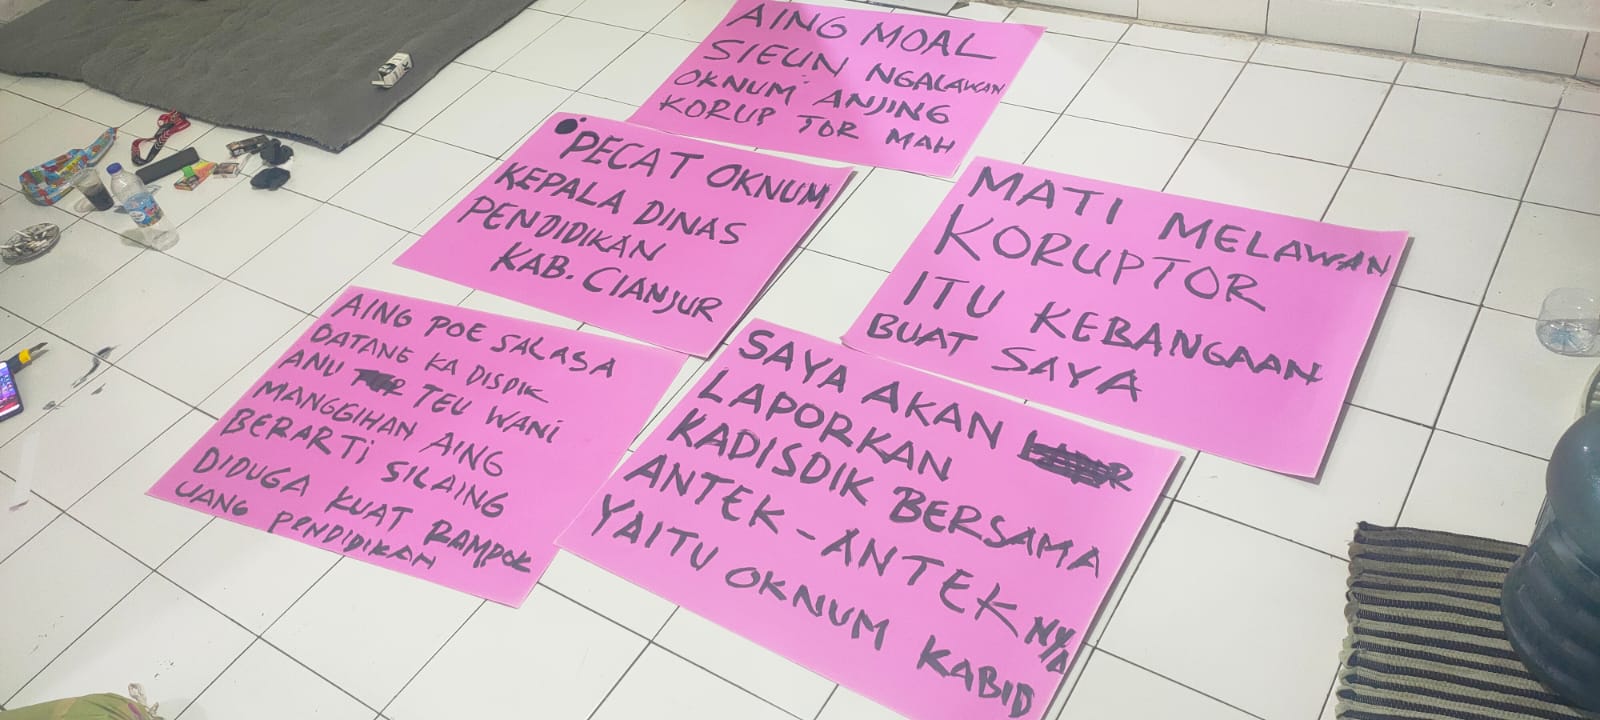 AING MOAL
SIEUN NGALAWAN
OKNUM ANJING
KORUPTOR MAH
PECAT OKNUM
KEPALA DINAS
PENDIDIKAN
KAB. CIANJUR
MATI MELAWAN
KORUPTOR
ITU KEBANGAAN
BUAT SAYA
AING POE SALASA
DATANG KA DISDIK
ANU TEU WANI
MANGGIHAN AING
BERARTI SILAING
DIDUGA KUAT RAMPOK
UANG PENDIDIKAN
SAYA AKAN
LAPORKAN
KADISDIK BERSAMA
ANTEK-ANTEKNYA
YAITU OKNUM KABID